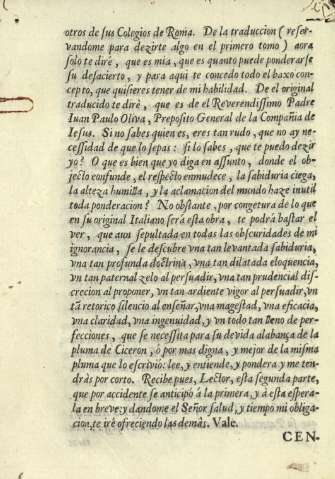 otros de sus Colegios de Roma. De la traduccion (reser-
vandome para dezirte algo en el primero tomo) aora
solo te diré, que es mia, que es quanto puede ponderarse
su desacierto, y para aqui te concedo todo el baxo con-
cepto, que quisieres tener de mi habilidad. De el original
traducido te diré, que es de el Reverendissimo Padre
Iuan Paulo Oliva, Preposito General de la Compañia de
Iesus. Si no sabes quien es, eres tan rudo, que no ay ne-
cessidad de que lo sepas: si lo sabes, que te puedo dezir
yo? O que es bien que yo diga en assunto, donde el ob-
jecto confunde, el respecto enmudece, la sabiduria ciega,
la alteza humilla, y la aclamacion del mundo haze inutil
toda ponderacion? No obstante, por congetura de lo que
en su original Italiano será esta obra, te podrá bastar el
ver, que aun sepultada en todas las obscuridades de mi
ignorancia, se le descubre vna tan levantada sabiduria,
vna tan profunda doctrina, vna tan dilatada eloquencia,
vn tan paternal zelo al persuadir, vna tan prudencial dis-
crecion al proponer, vn tan ardiente vigor al persuadir, vn
tã retorico silencio al enseñar, vna magestad, vna eficacia,
vna claridad, vna ingenuidad, y vn todo tan lleno de per-
fecciones, que se necessita para su devida alabança de la
pluma de Ciceron, ó por mas digna, y mejor de la misma
pluma que lo escrivio: lee, y entiende, y pondera y me ten-
drás por corto. Recibe pues, Lector, esta segunda parte,
que por accidente se anticipó á la primera, y á esta espera-
la en breve: y dandome el Señor salud, y tiempo mi obliga-
cion, te iré ofreciendo las demás. Vale.
CEN-